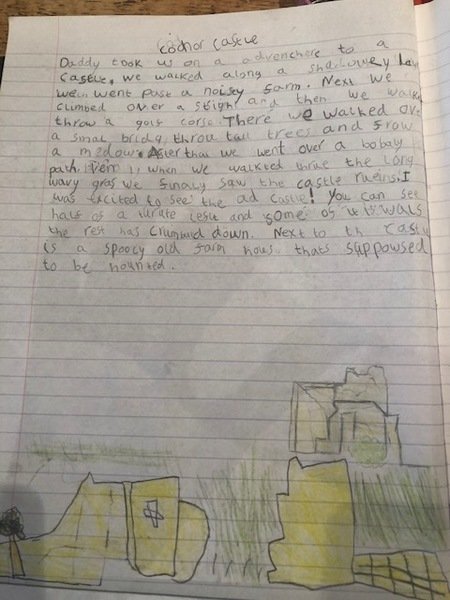 codnor castle
Daddy took us on a advenchere to a
castle. we walked along a shadowey lane
went past a noisey farm. Next we
climbed over a stight and then we walked
throw a golf corse. There we walked over
a smal bridg throu tall trees and frow
a medow. After that we went over a bobaly
path. when we walkted thrue the long
wavy gras we finaly saw the castle rueins. I
was excited to see the old castle! You can see
half of a turute left and some of it's wals
the rest has Crumbuld down. Next to th castle
is a spoocy old farm hows thats suppowsed
to be hounted.